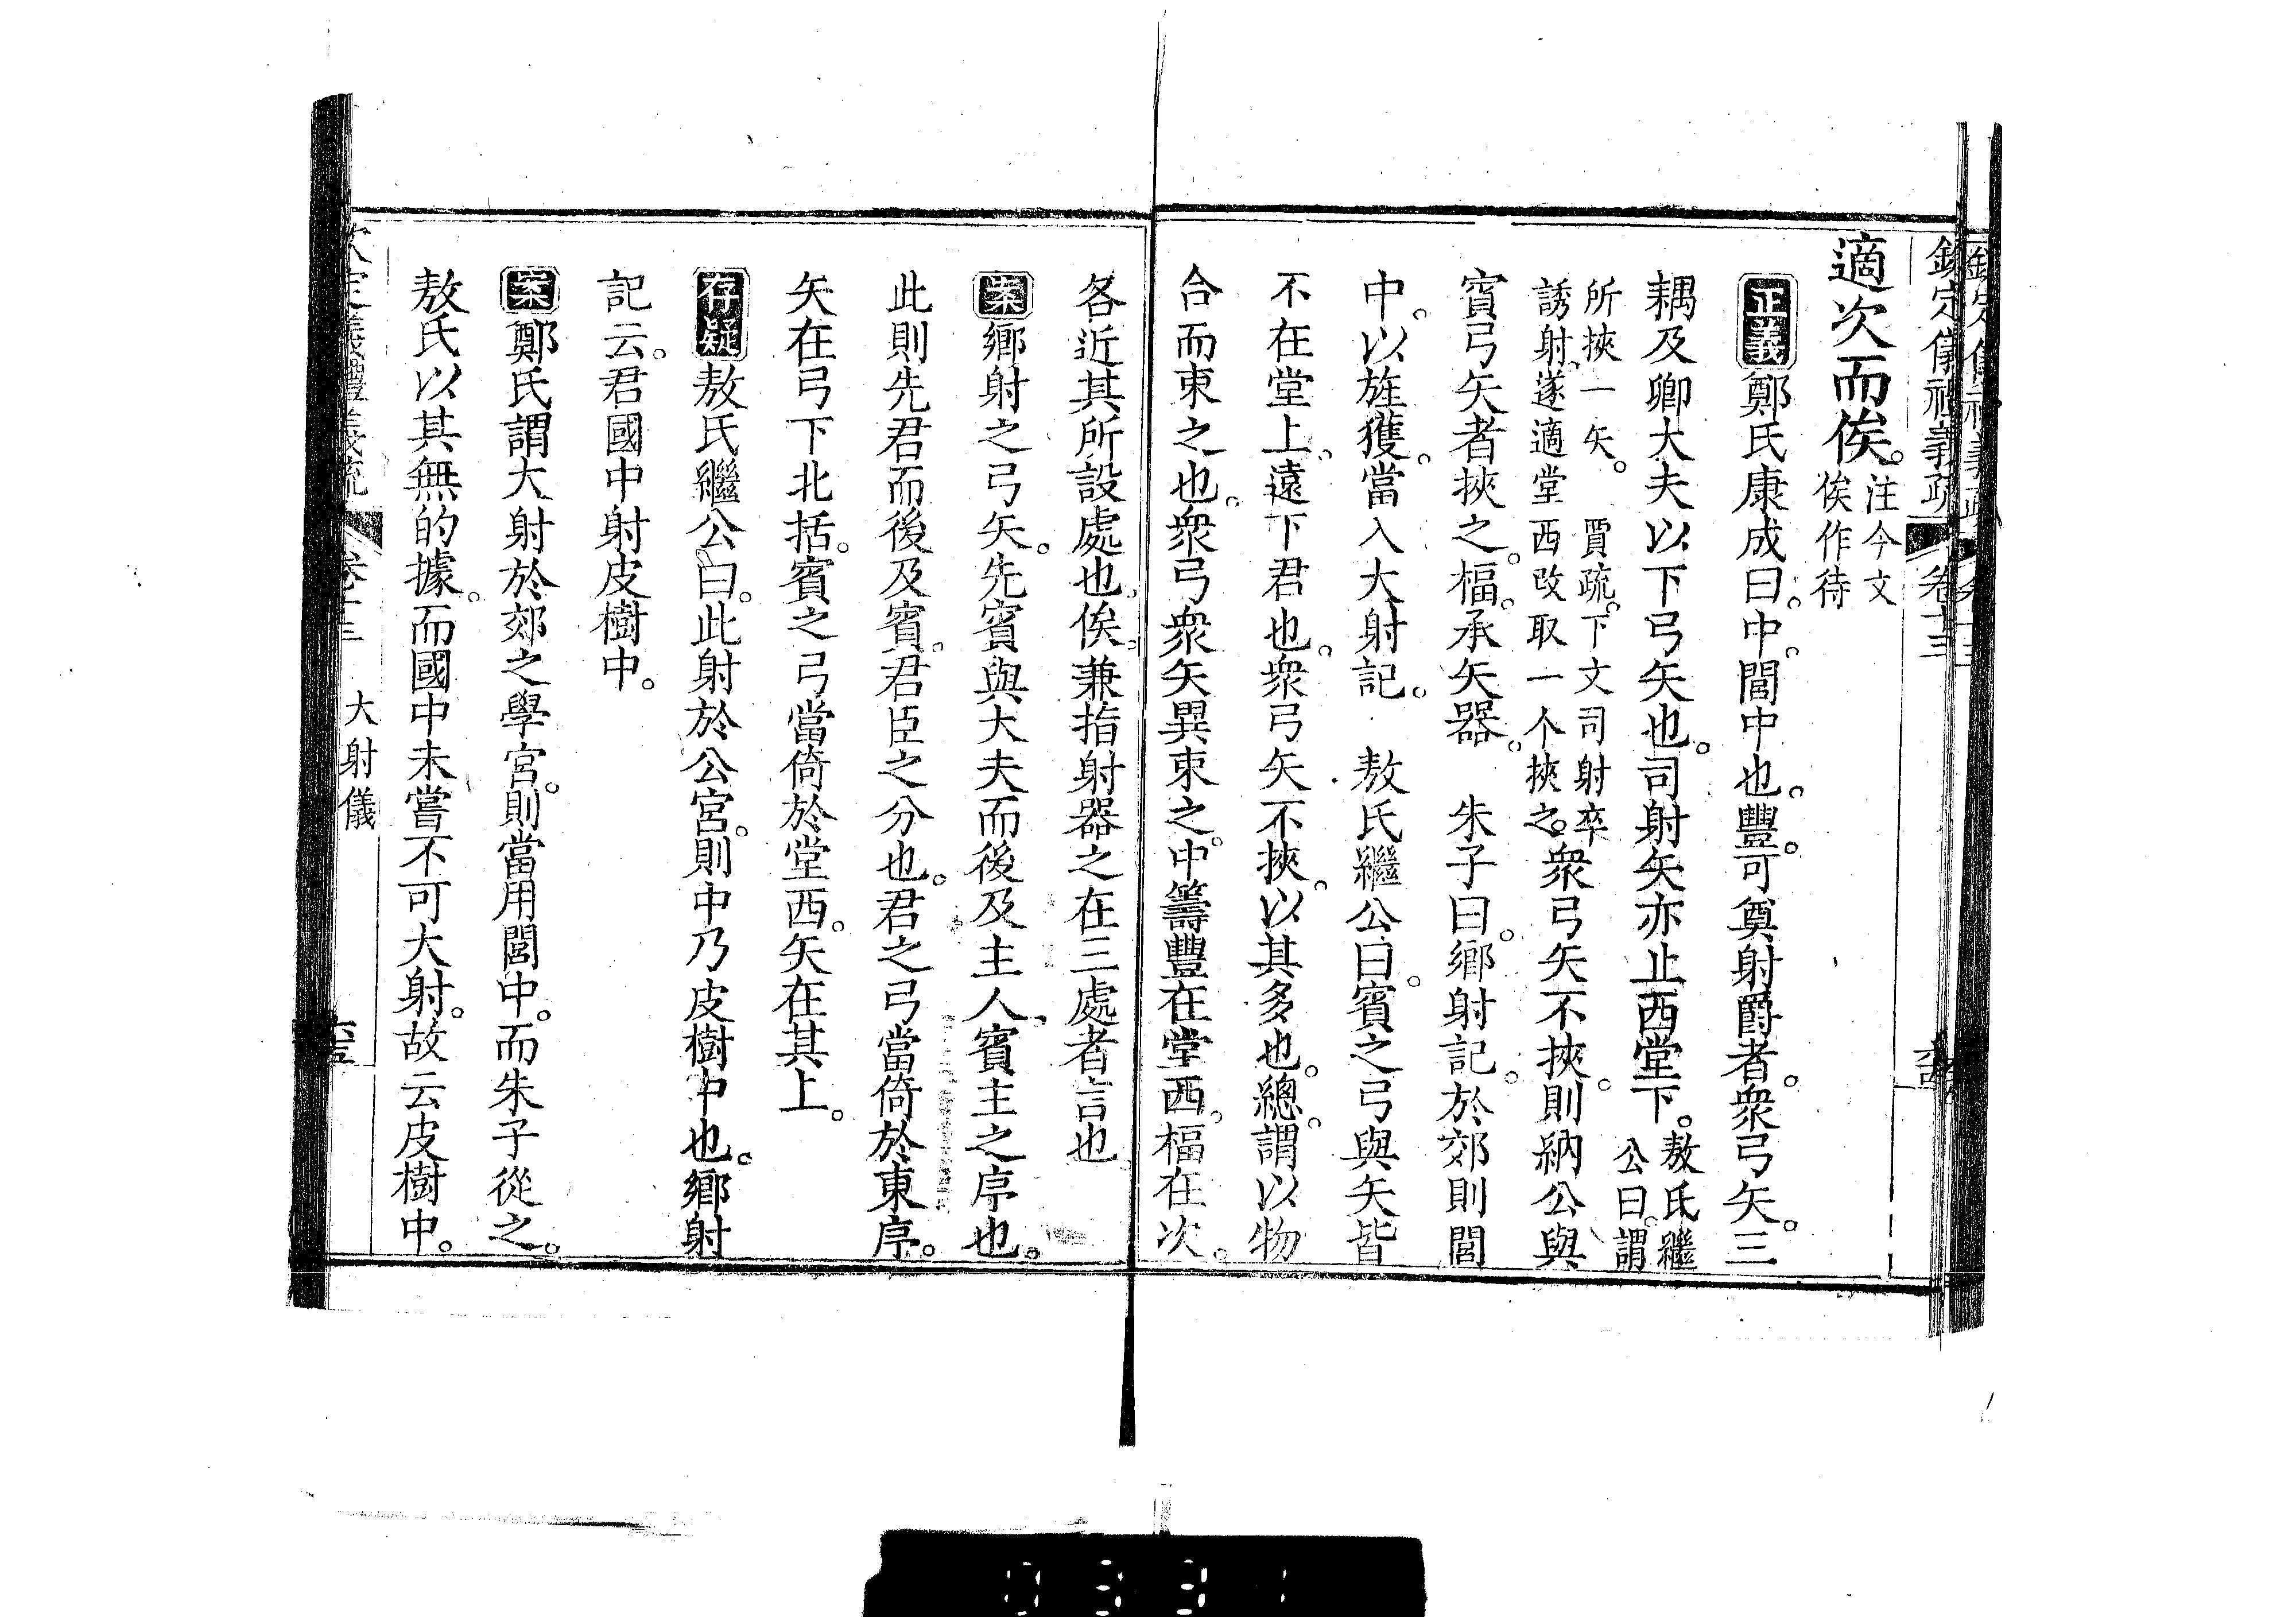 欽定儀禮義疏 卷十三
適次而俟。注今文俟作待
正義 鄭氏康成曰。中。閭中也。豐。可奠射爵者。衆弓矢。三
耦及卿大夫以下弓矢也。司射矢亦止西堂下。敖氏繼公曰。謂
所挾一矢。 賈疏。下文司射卒誘射。遂適堂西改取一个挾之。衆弓矢不挾。則納公與
賓弓矢者挾之。楅。承矢器。 朱子曰。鄉射記。於郊則閭
中。以旌獲。當入大射記。 敖氏繼公曰。賓之弓與矢皆
不在堂上。遠下君也。衆弓矢不挾。以其多也。總。謂以物
合而束之也。衆弓衆矢異束之。中籌豐在堂西。楅在次。
各近其所設處也。俟。兼指射器之在三處者言也
案 鄉射之弓矢。先賓與大夫而後及主人。賓主之序也。
此則先君而後及賓。君臣之分也。君之弓當倚於東序。
矢在弓下北括。賓之弓當倚於堂西。矢在其上。
存疑 敖氏繼公曰。此射於公宮。則中乃皮樹中也。鄉射
記云。君國中射皮樹中。
案 鄭氏謂大射於郊之學宮。則當用閭中。而朱子從之。
敖氏以其無的據。而國中未嘗不可大射。故云皮樹中。
大射儀